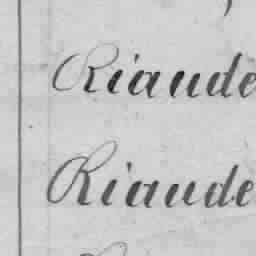 Riaude
Riaude